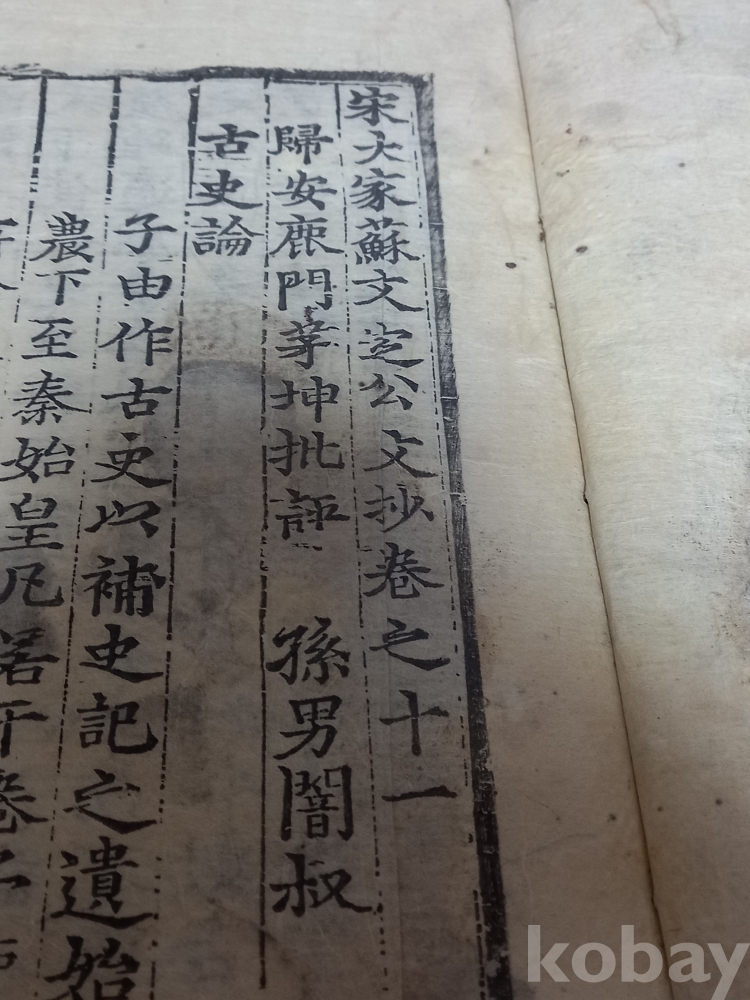 宋大家蘇文定公文抄卷之十一
歸安鹿門茅坤批評 孫男闇叔
古史論
子由作古史以補史記之遺始
農下至秦始皇凡若干卷
kobay